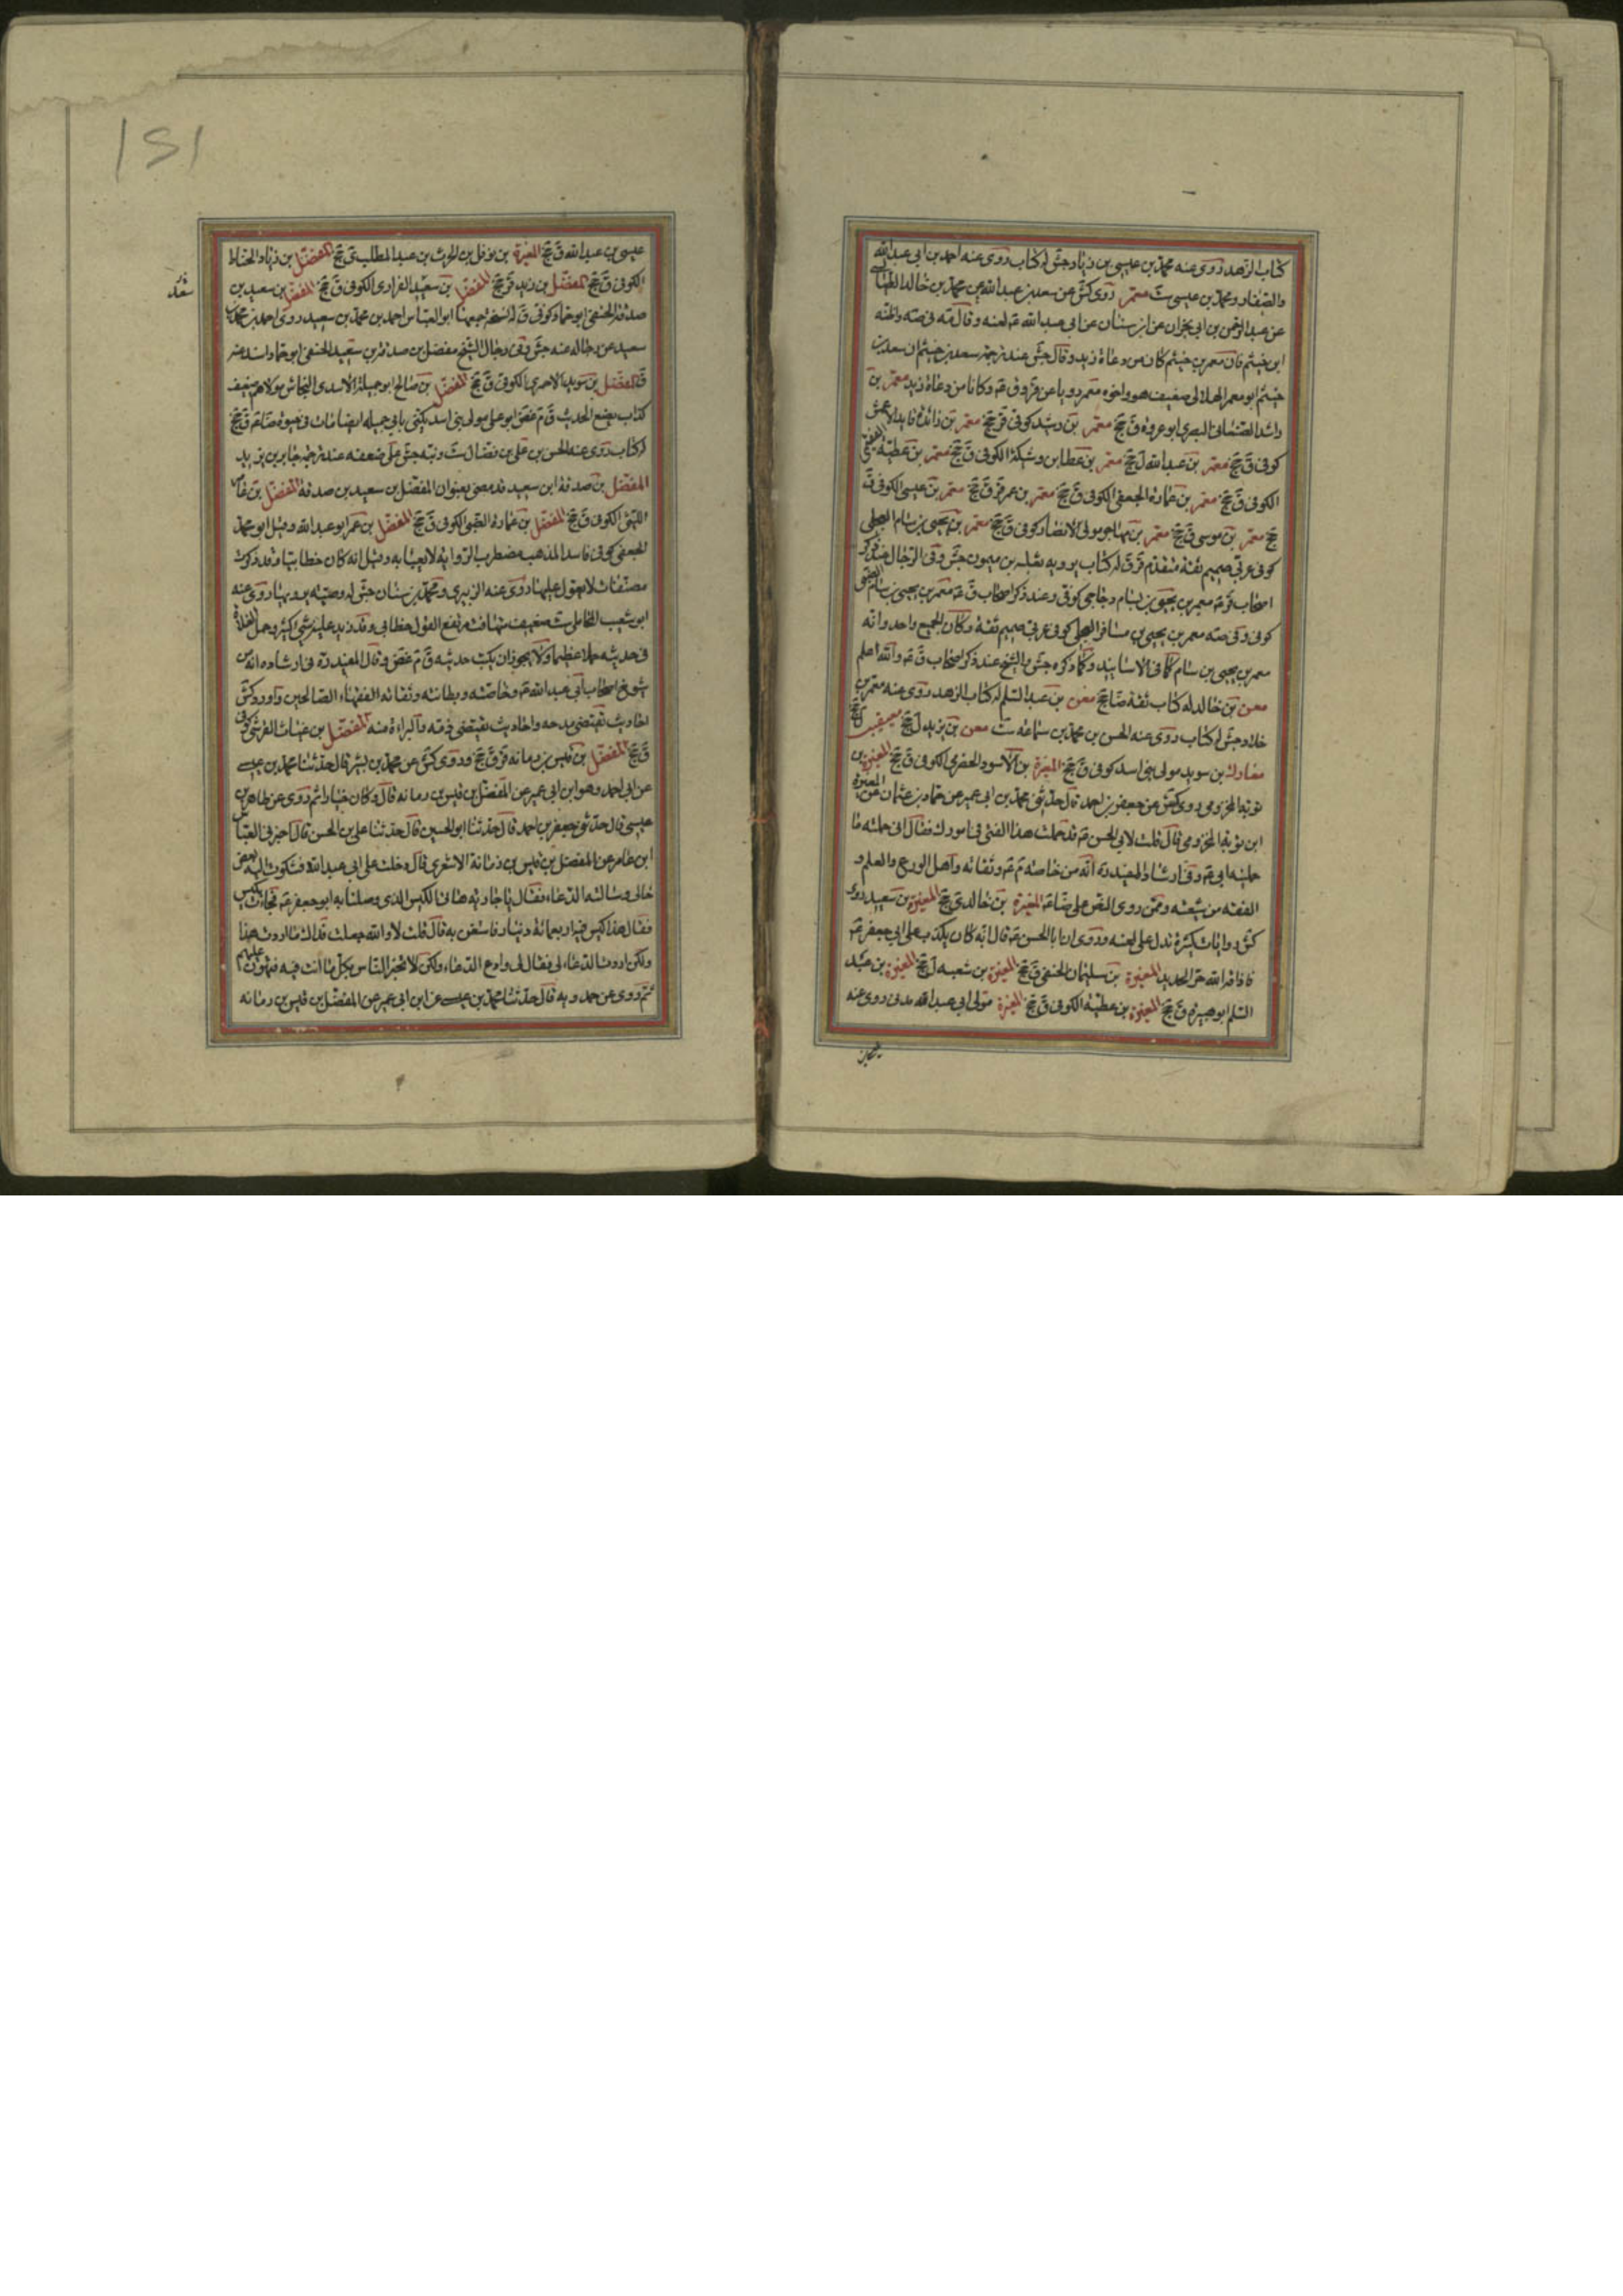 كتاب الزهد روى عنه محمد بن عيسى بن زياد جش له كتاب روى عنه احمد بن ابي عبد الله
والصفار ومحمد بن عيسى ست معمر روى كش عن سعد بن عبد الله عن محمد بن خالد الطيالسي
عن عبد الرحمن بن ابي نجران عن ابن سنان عن ابي عبد الله لعنه وقال
ابن خيثم قال معمر بن خيثم كان من دعاة زيد وقال جش عند ترجمة سعد بن خيثم ان سعد بن
خيثم ابو معمر الهلالي ضعيف هو واخوه معمر رويا عن قر وق وكانا من دعاة زيد معمر بن
راشد الصنعاني البصري ابو عروة ق جخ معمر بن رشيد كوفي قر جخ معمر بن زائدة قايد الاعمش
كوفي ق جخ معمر بن عبد الله ل جخ معمر بن عطا بن وشيكة الكوفي ق جخ معمر بن عطية
الكوفي ق جخ معمر بن عمارة الجعفي الكوفي ق جخ معمر بن عمر قر ق جخ معمر بن عيسى الكوفي ق
جخ معمر بن موسى ق جخ معمر بن مهاجر مولى الانصار كوفي ق جخ معمر بن يحيى بن سام العجلي
كوفي عربي صميم ثقة متقدم قر ق له كتاب يرويه ثعلبه بن ميمون جش وفي الرجال عند ذكر
اصحاب قر معمر بن يحيى بن بسام دجاجي كوفي وعند ذكر اصحاب ق معمر بن يحيى بن سام الضبي
كوفي وفي صه معمر بن يحيى بن مسافر العجلي كوفي عربي صميم ثقة وكان الجميع واحد وانه
معمر بن يحيى بن سام كما في الاسانيد وكما ذكره جش والشيخ عند ذكر اصحاب ق والله اعلم
معن بن خالد له كتاب ثقة ضا جخ معن بن عبد السلم له كتاب الزهد روى عنه معمر بن
خلاد جش له كتاب روى عنه الحسن بن محمد بن سماعه ست معن بن يزيد ل جخ معيقيب
بن سويد مولى بني اسد كوفي ق جخ المغيرة بن الاسود الكوفي ق جخ المغيرة بن
توبة المخزومي روى كش عن جعفر بن احمد قال حدثني محمد بن ابي عمير عن حماد بن عثمان عن المغيرة
ابن توبة المخزومي قال قلت لابي الحسن قد حملت هذا الفتى في امورك فقال اني حملته ما
حملنيه ابي وفي ارشاد المفيد انه من خاصته وثقاته واهل الورع والعلم و
الفقه من شيعته وممن روى النص على ضا المغيرة بن خالد ي جخ المغيرة بن سعيد روى
كش روايات كثيرة تدل على لعنه وروى ان ابا الحسن قال انه كان يكذب على ابي جعفر
فاذاقه الله حر الحديد المغيرة بن سليمان الحنفي ق جخ المغيرة بن شعبه ل جخ المغيرة بن عبد
السلم ابو ق جخ المغيرة بن عطية الكوفي ق جخ المغيرة مولى ابي عبد الله مدني روى عنه
عيسى بن عبد الله ق جخ المغيرة بن نوفل بن الحرث بن عبد المطلب ي جخ المفضل بن زياد الخياط
الكوفي ق جخ المفضل بن زيد قر جخ المفضل بن سعيد الفزاري الكوفي ق جخ المفضل بن سعيد بن
صدقة الحنفي ابو حماد كوفي ق له نسخة ابو العباس احمد بن محمد بن سعيد روى احمد بن محمد بن
سعيد عن رجاله عنه جش وفي رجال الشيخ مفضل بن صدقة بن سعيد الحنفي ابو حماد اسند عنه
ق المفضل بن سويد الكوفي ق جخ المفضل بن صالح ابو جميلة الاسدي النخاس مولاهم ضعيف
كذاب يضع الحديث ق م غض ابو علي مولى بني اسد يكنى بابي جميله ايضا مات في حيوة ضا ق جخ
له كتاب روى عنه الحسن بن علي بن فضال ست ونبه جش على ضعفه عند ترجمة جابر بن يزيد
المفضل بن صدقة ابن سعيد قد مضى بعنوان المفضل بن سعيد بن صدقة المفضل بن
الليثي الكوفي ق جخ المفضل بن عمارة الضبي الكوفي ق جخ المفضل بن عمر ابو عبد الله وقيل ابو محمد
الجعفي كوفي فاسد المذهب مضطرب الرواية لا يعبا به وقيل انه كان خطابيا وقد ذكرت
مصنفات لا يعول عليها روى عنه الزبيري ومحمد بن سنان جش له وصية يرويها روى عنه
ابو شعيب المحاملي ست ضعيف متهافت مرتفع القول خطابي وقد زيد عليه شيء كثير وحمل الغلاة
في حديثه حملا عظيما ولا يجوز ان يكتب حديثه ق م غض وقال المفيد ره في ارشاده انه من
شيوخ اصحاب ابي عبد الله وخاصته وبطانته وثقاته الفقهاء الصالحين واورد كش
احاديث تقتضي مدحه واحاديث تقتضي ذمه والبراءة منه المفضل بن غياث القرشي كوفي
ق جخ المفضل بن قيس بن رمانه قر ق جخ وروى كش عن محمد بن بشر قال حدثنا محمد بن عيسى
عن ابي احمد وهو ابن ابي عمير عن المفضل بن قيس بن رمانه قال وكان خيارا ثم روى عن طاهر بن
عيسى قال حدثني جعفر بن احمد قال حدثنا ابو الحسين قال حدثنا علي بن الحسن قال اخبرني العباس
ابن عامر عن المفضل بن قيس بن رمانة الاشعري قال دخلت على ابي عبد الله فشكوت اليه بعض
حالي وسالته الدعاء فقال يا جارية هاتي الكيس الذي وصلنا به ابو جعفر فجاءت بكيس
فقال هذا كيس فيه اربعمائة دينار فاستعن به قال قلت لا والله جعلت فداك ما اردت هذا
ولكن اردت الدعاء لي فقال لي وادع الدعاء ولكن لا تخبر الناس بكل ما انت فيه فتهون عليهم
ثم روى عن حمدويه قال حدثنا محمد بن عيسى عن ابن ابي عمير عن المفضل بن قيس بن رمانه